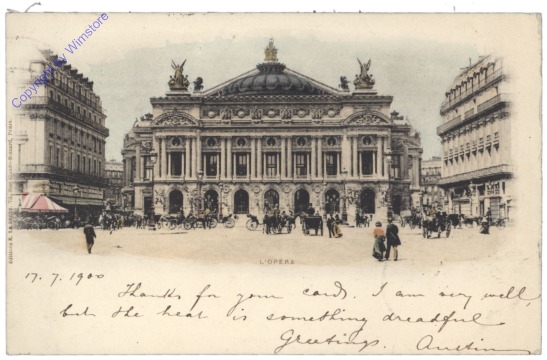 Copyright by Wimstore
L'OPÉRA
17.7.1900
Thanks for your cards. I am very well,
but the heat is something dreadful.
Greetings. Austin